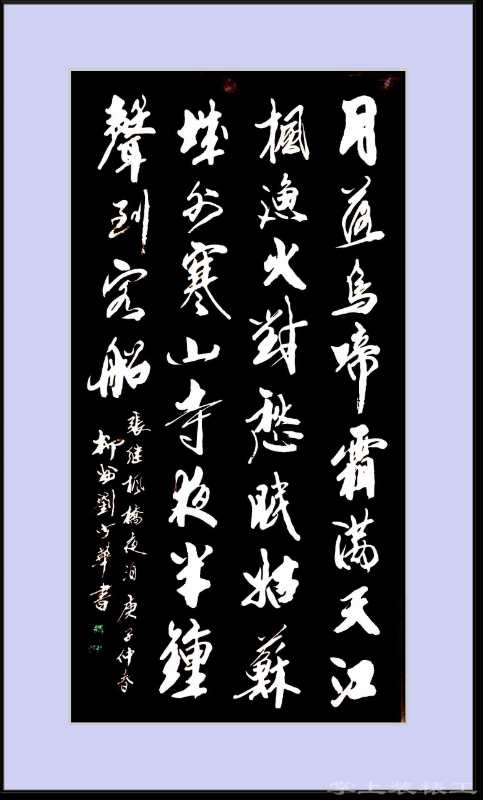 月落烏啼霜滿天江
楓漁火對愁眠姑蘇
城外寒山寺夜半鐘
聲到客船
張继楓橋夜泊 庚子仲春
柳州劉少華書
掌上装裱工